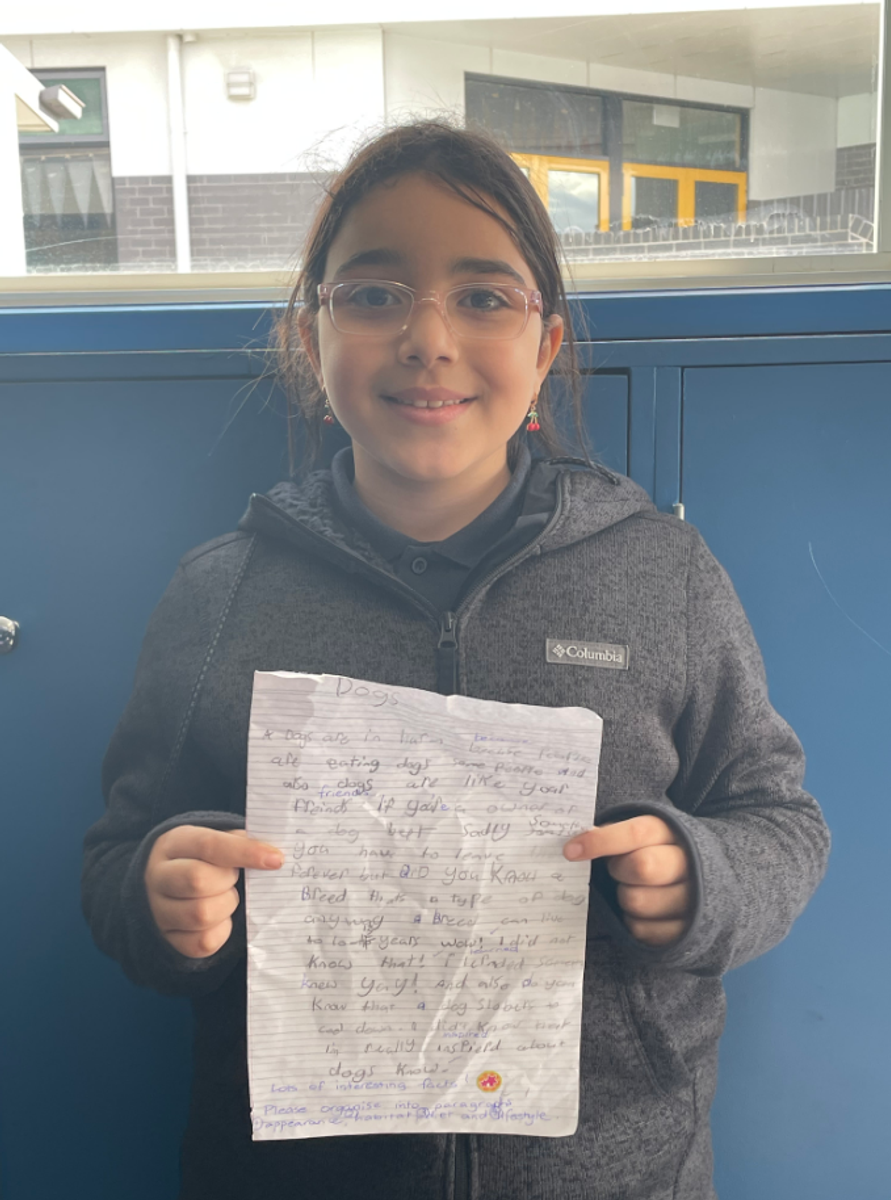 Columbia
Dogs
* Dogs are in because
because people
are eating dogs some people and
also dogs are like your
friends
freinds if you're a owner of
a dog but sadly
you have to leave
forever but DiD you Know a
Breed thats a type of dog
anyway a Breed can live
to 10-15 years wow! I did not
learned
Know that! I
knew yay! And also do you
Know that a dog to
cool down. I know that
inspired
im really inspierd about
dogs know.
Lots of interesting facts!
Please organise into paragraphs
appearance, habitat, diet and lifestyle